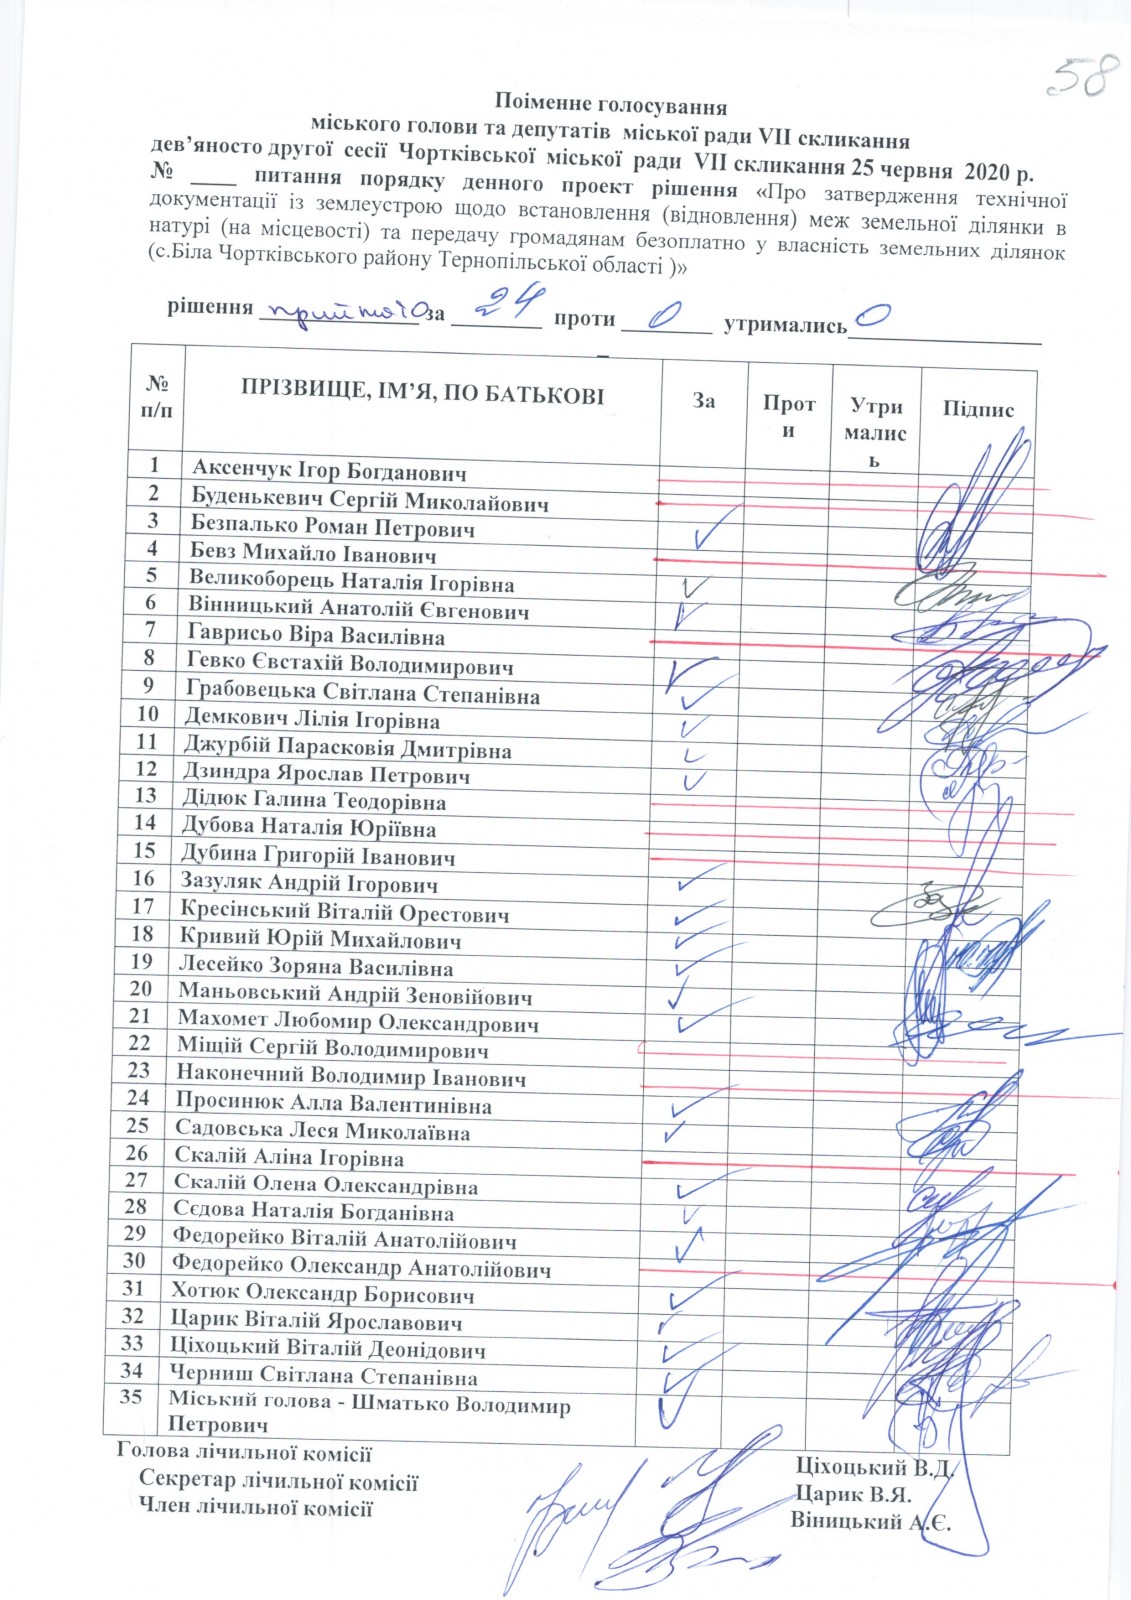 58
Поіменне голосування
міського голови та депутатів міської ради VII скликання
дев’яносто другої сесії Чортківської міської ради VII скликання 25 червня 2020 р.
№ ____ питання порядку денного проект рішення «Про затвердження технічної
документації із землеустрою щодо встановлення (відновлення) меж земельної ділянки в
натурі (на місцевості) та передачу громадянам безоплатно у власність земельних ділянок
(с.Біла Чортківського району Тернопільської області )»
рішення прийнято за 24 проти 0 утримались 0
№ п/п ПРІЗВИЩЕ, ІМ’Я, ПО БАТЬКОВІ За Проти Утримались Підпис
1 Аксенчук Ігор Богданович
2 Буденькевич Сергій Миколайович
3 Безпалько Роман Петрович
4 Бевз Михайло Іванович
5 Великоборець Наталія Ігорівна
6 Вінницький Анатолій Євгенович
7 Гаврисьо Віра Василівна
8 Гевко Євстахій Володимирович
9 Грабовецька Світлана Степанівна
10 Демкович Лілія Ігорівна
11 Джурбій Парасковія Дмитрівна
12 Дзиндра Ярослав Петрович
13 Дідюк Галина Теодорівна
14 Дубова Наталія Юріївна
15 Дубина Григорій Іванович
16 Зазуляк Андрій Ігорович
17 Кресінський Віталій Орестович
18 Кривий Юрій Михайлович
19 Лесейко Зоряна Василівна
20 Маньовський Андрій Зеновійович
21 Махомет Любомир Олександрович
22 Міщій Сергій Володимирович
23 Наконечний Володимир Іванович
24 Просинюк Алла Валентинівна
25 Садовська Леся Миколаївна
26 Скалій Аліна Ігорівна
27 Скалій Олена Олександрівна
28 Сєдова Наталія Богданівна
29 Федорейко Віталій Анатолійович
30 Федорейко Олександр Анатолійович
31 Хотюк Олександр Борисович
32 Царик Віталій Ярославович
33 Ціхоцький Віталій Деонідович
34 Черниш Світлана Степанівна
35 Міський голова - Шматько Володимир
Петрович
Голова лічильної комісії Ціхоцький В.Д.
Секретар лічильної комісії Царик В.Я.
Член лічильної комісії Віницький А.Є.